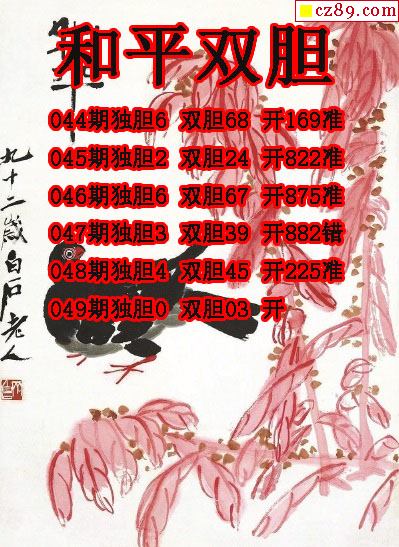 cz89.com
和平双胆
044期独胆6 双胆68 开169准
045期独胆2 双胆24 开822准
046期独胆6 双胆67 开875准
047期独胆3 双胆39 开882错
048期独胆4 双胆45 开225准
049期独胆0 双胆03 开
九十二岁白石老人